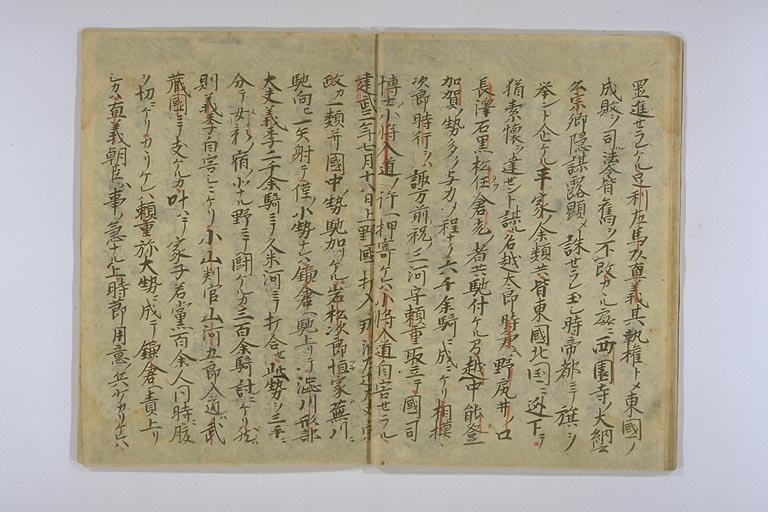 置進セラレケル足利左馬頭直義其執権トメ東國ノ
成敗ヲ司ル法令皆舊ヲ不改カヽル処ニ西園寺ノ大納言
公宗卿隠謀露顕メ誅セラレ玉シ時帝都ニテ旗ヲ
挙ント企ケル平家ノ余類共皆東國北国ニ逃下テ
猶素懐ヲ達セント謀ル名越太郎時兼ハ野尻井ノ口
長澤石黒松任倉光ノ者共馳付ケル乃越中能登
加賀ノ勢多ク与力ノ程ナク六千余騎ニ成ニケリ相模
次郎時行ヲハ諏方前祝三河守頼重取立テ國司
博士小将入道ノ許ヘ押寄ケレハ小将入道自害セラル
建武二年七月十八日上野國ヘ打入
政カ一類并國中ノ勢馳加リケル岩松次郎恒家蕪川
馳向ヒ一矢射テ僅ノ小勢ナレハ鎌倉ヘ馳上リテ渋川形部
大夫義季二千余騎ニテ久米河ニテ打合セ此勢ヲ三手ニ
分テ女
則義季自害シニケリ小山判官山
蔵國ニテ支ケルカ叶ハテ家子若黨百余人同時腹
ヲ切ニケリカヽリケレハ頼重弥大勢ニ成テ鎌倉ヘ責上リ
シカハ直義朝臣ハ事ノ急ナル上時節用意ノ兵少カリケレハ